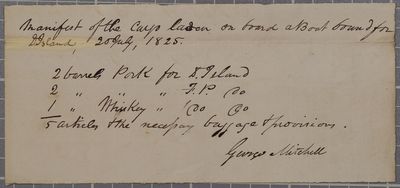 Manifest of the Cargo laden on board a Boat bound for
D. Island, 20 July, 1825.
2 barrels Pork for D. Island
2 " " " F.P. Do
1 " Whiskey " Do Do
5 articles & the necessary baggage & provisions.
George Mitchell